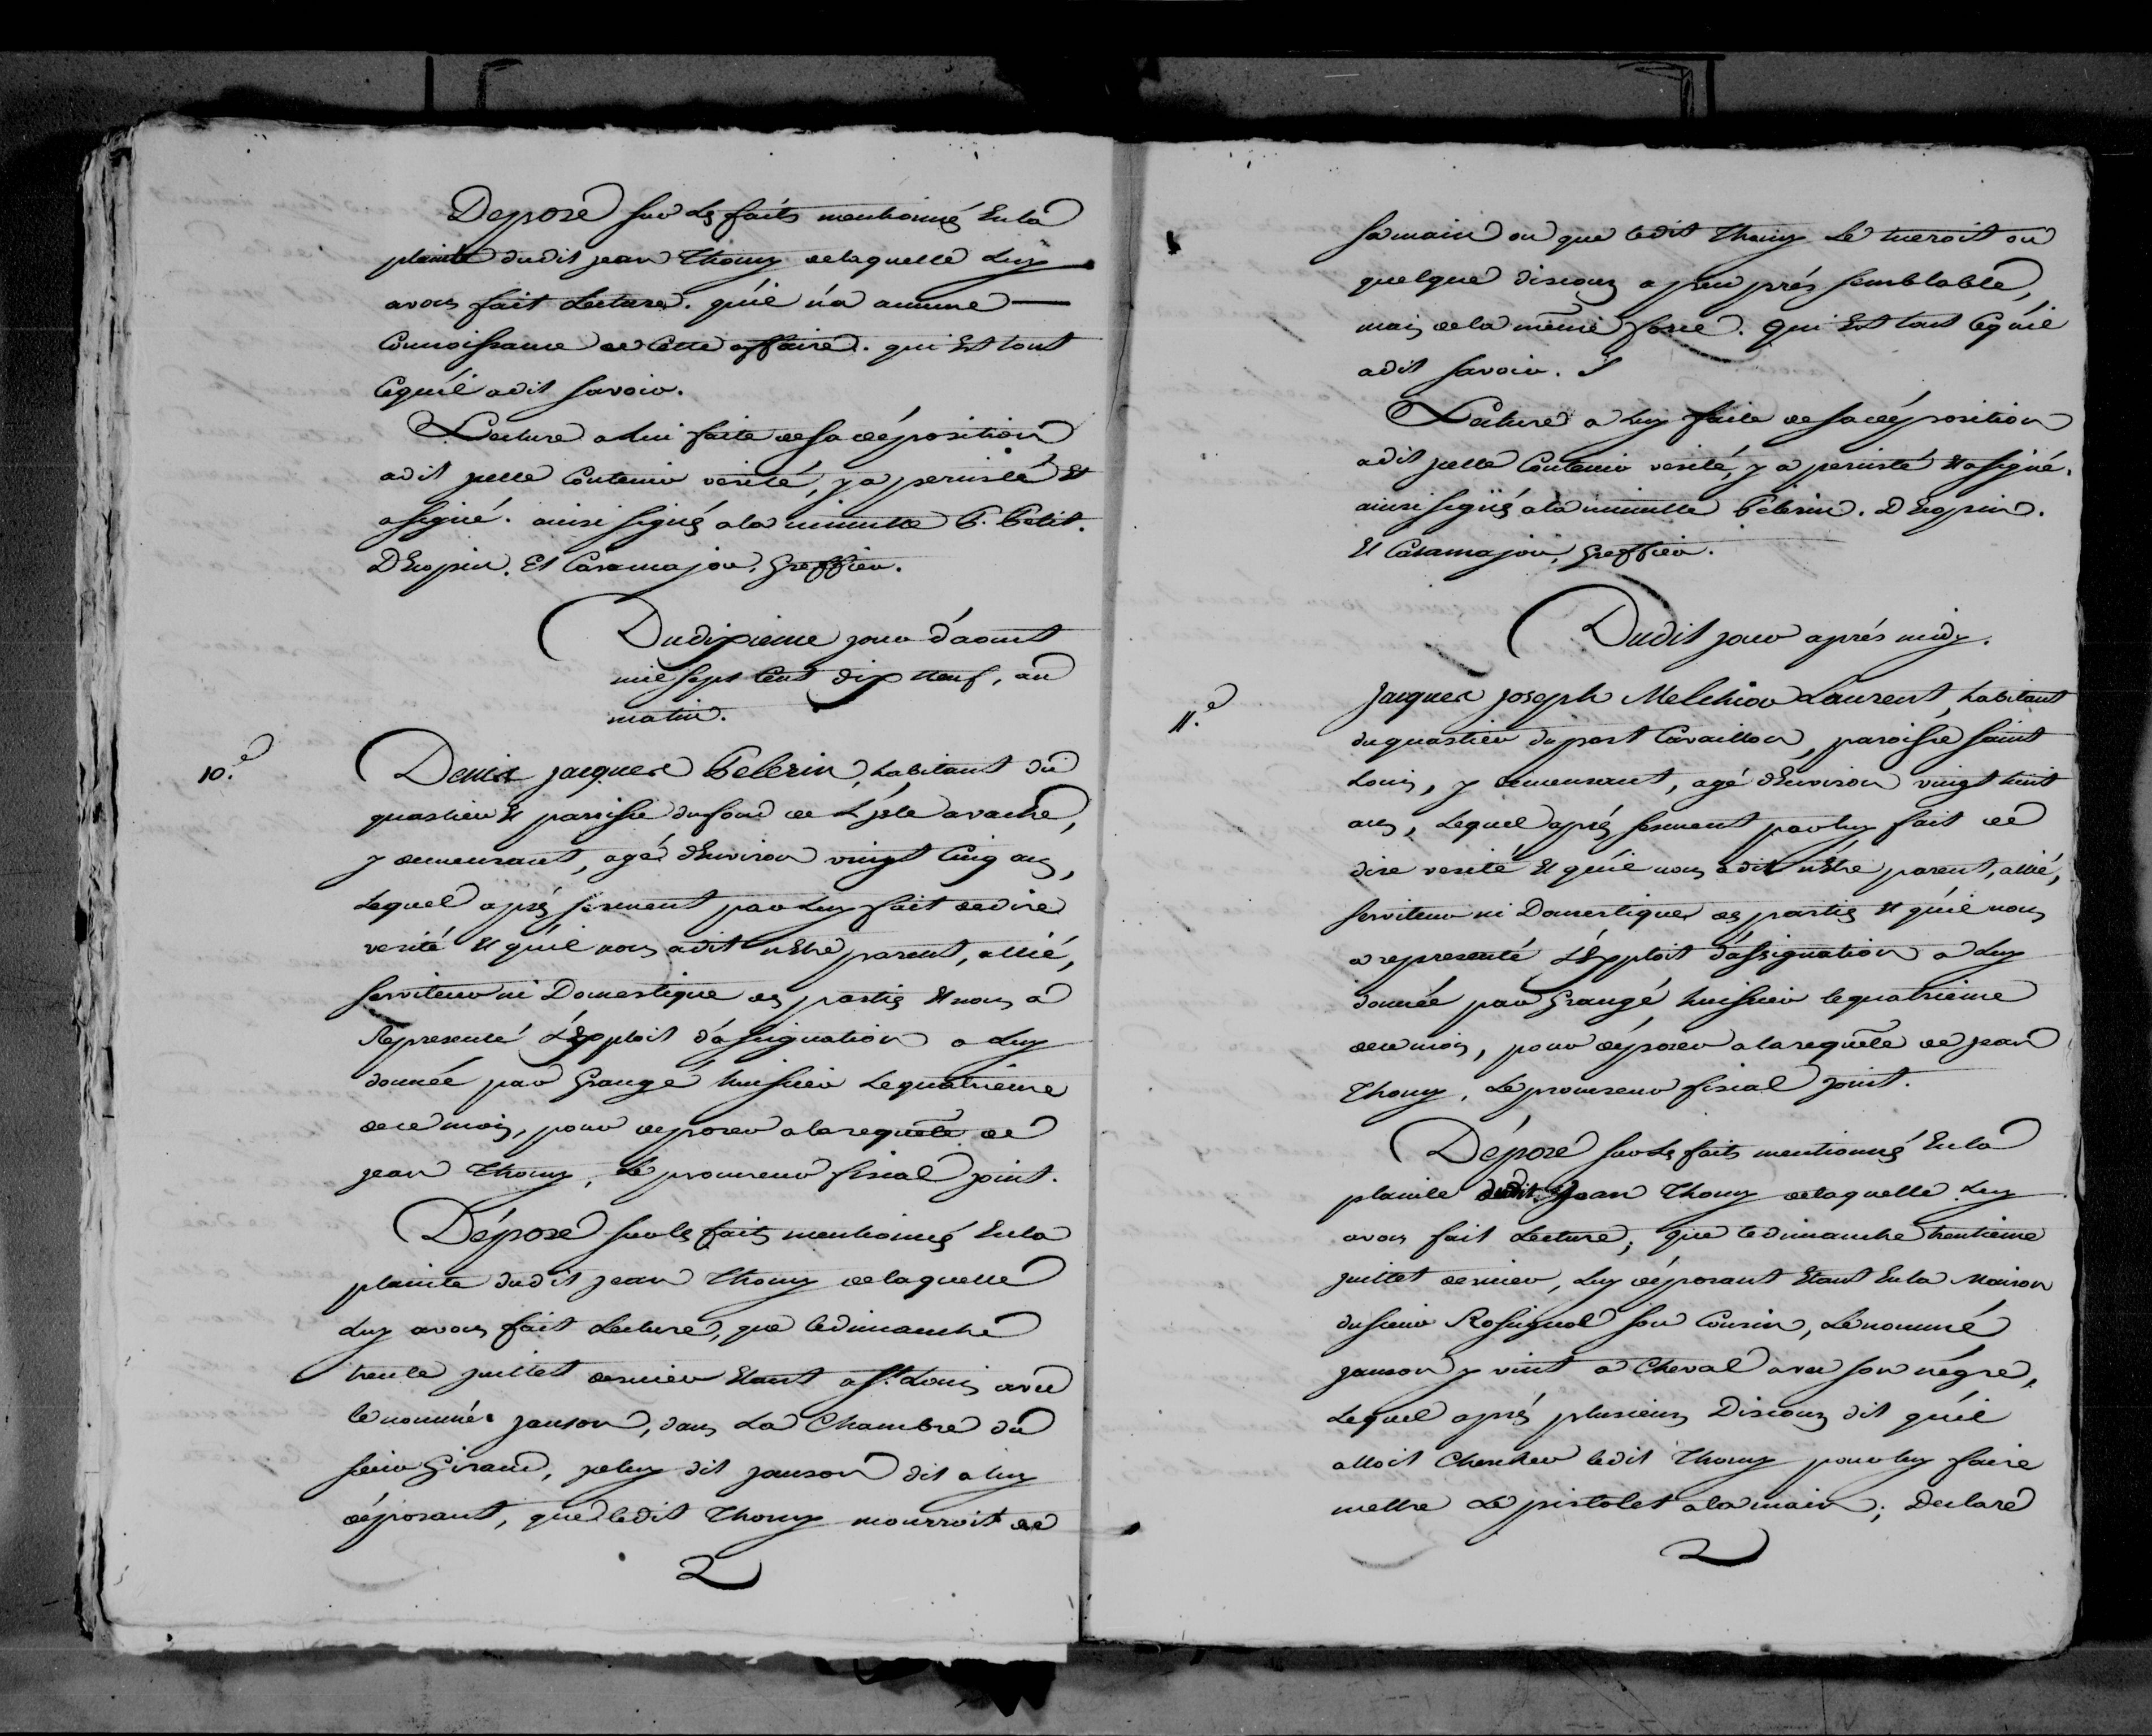 Déposé sur les faits mentionnés En la
plainte dudit jean Thomy de laquelle Luy
avons fait Lecture. qu'il n'a aucune
Connoissance de Cette affaire. qui Est tout
Cequ'il adit savoir.
Lecture a Lui faite de sa déposition
adit jcelle Contenir verité, y a persisté Et
asigné. ainsi signés a la minutte P. Petit.
D'Espin, Et Casamajor, Greffier.
Dudixieme jour d'aoust
mil sept Cent dix neuf, au
matin.
10.e
Denis jacques Pelerin, habitant du
quartier Et paroisse du fond de L'jsle avache,
y demeurant, agé d'Environ vingt Cinq ans,
Lequel après serment par Luy fait de dire
verité Et qu'il nous adit n'Etre parent, allié,
serviteur ni Domestique des parties Et nous a
Représenté L'Exploit d'assignation a Luy
donnée par Grangé huissier Le quatrieme
de ce mois, pour déposer a la requête de
jean Thomy, Le procureur fiscal joint.
Déposé sur les faits mentionnés En la
plainte dudit jean Thomy de laquelle
Luy avons fait Lecture, que le dimanche
trente juillet dernier Etant a St. Louis avec
le nommé janson, dans La Chambre du
sieur Giraud, jceluy dit janson dit a luy
déposant, que ledit Thomy mourroit de
sa main ou que ledit Thomy Le tueroit ou
quelque discours a peu près semblable,
mais de la même force. Qui Est tout Cequ'il
adit savoir.
Lecture a Luy faite de sa déposition
adit jcelle Contenir verité, y a persisté Et asigné.
ainsi signés a la minutte Pelerin. D'Espin.
Et Casamajor, Greffier.
Dudit jour après midy.
11.e
Jacques joseph Melchior Laurent, habitant
du quartier du port Cavaillon, paroisse saint
Louis, y demeurant, agé d'Environ vingt huit
ans, Lequel après serment par luy fait de
dire verité Et qu'il nous adit n'Etre parent, allié,
serviteur ni Domestiques des parties Et qu'il nous
a representé L'Exploit d'assignation a Luy
donnée par Grangé huissier le quatrieme
de ce mois, pour déposer a la requête de jean
Thomy, Le procureur fiscal joint.
Déposé sur les faits mentionnés En la
plainte dudit Jean Thomy de laquelle Luy
avons fait Lecture, que le dimanche trentieme
juillet dernier, Luy déposant Etant En la Maison
du sieur Rossignol son Cousin, Le nommé
janson y vint a Cheval avec son négre,
Lequel après plusieurs Discours dit qu'il
alloit Chercher ledit Thomy pour luy faire
mettre Le pistolet a la main; Declare